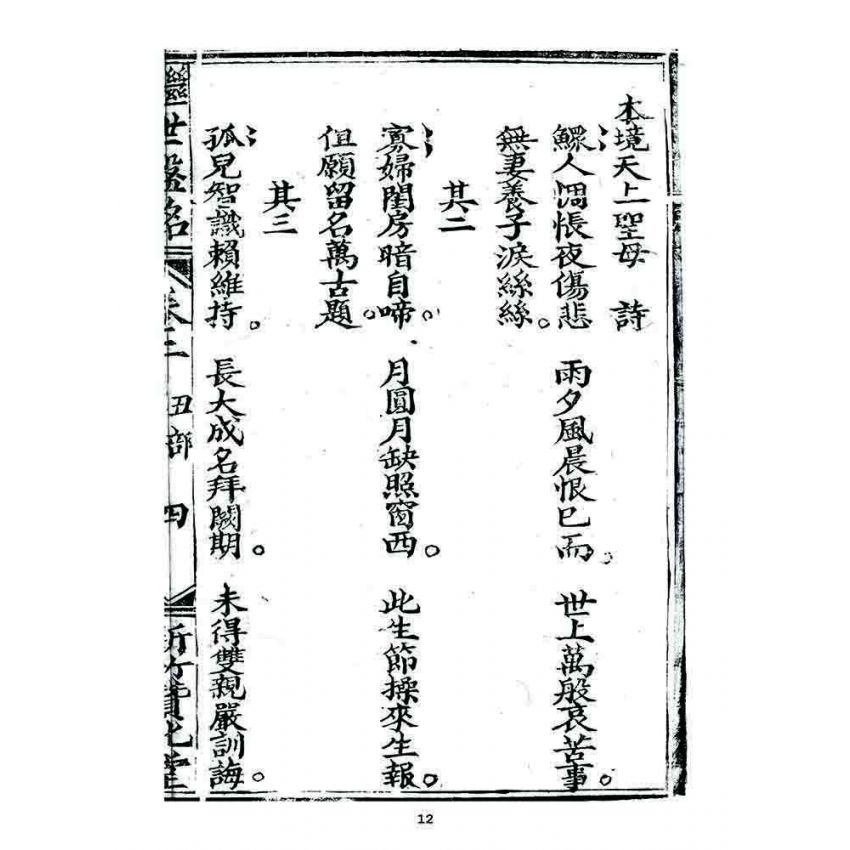 本境天上聖母　詩
鰥人惆悵夜傷悲　雨夕風晨恨已而。　世上萬般哀苦事。
無妻養子淚絲絲。
其二
寡婦閨房暗自啼。　月圓月缺照窗西。　此生節操來生報。
但願留名萬古題。
其三
孤兒智識賴維持。　長大成名拜闕期。　未得雙親嚴訓誨。
世盤銘　卷三　丑部　四　新竹贊化堂
12